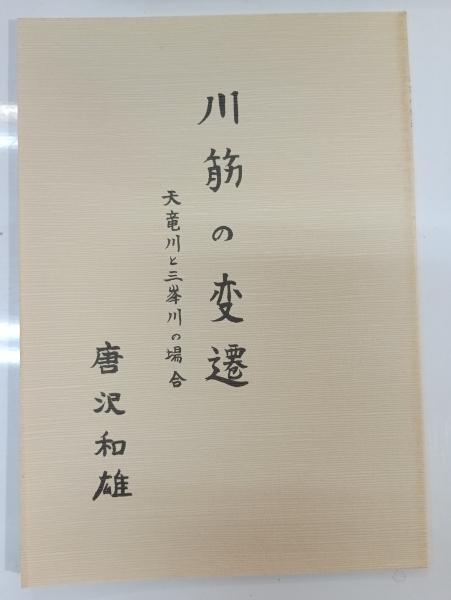 川筋の変遷
天竜川と三峯川の場合
唐沢和雄